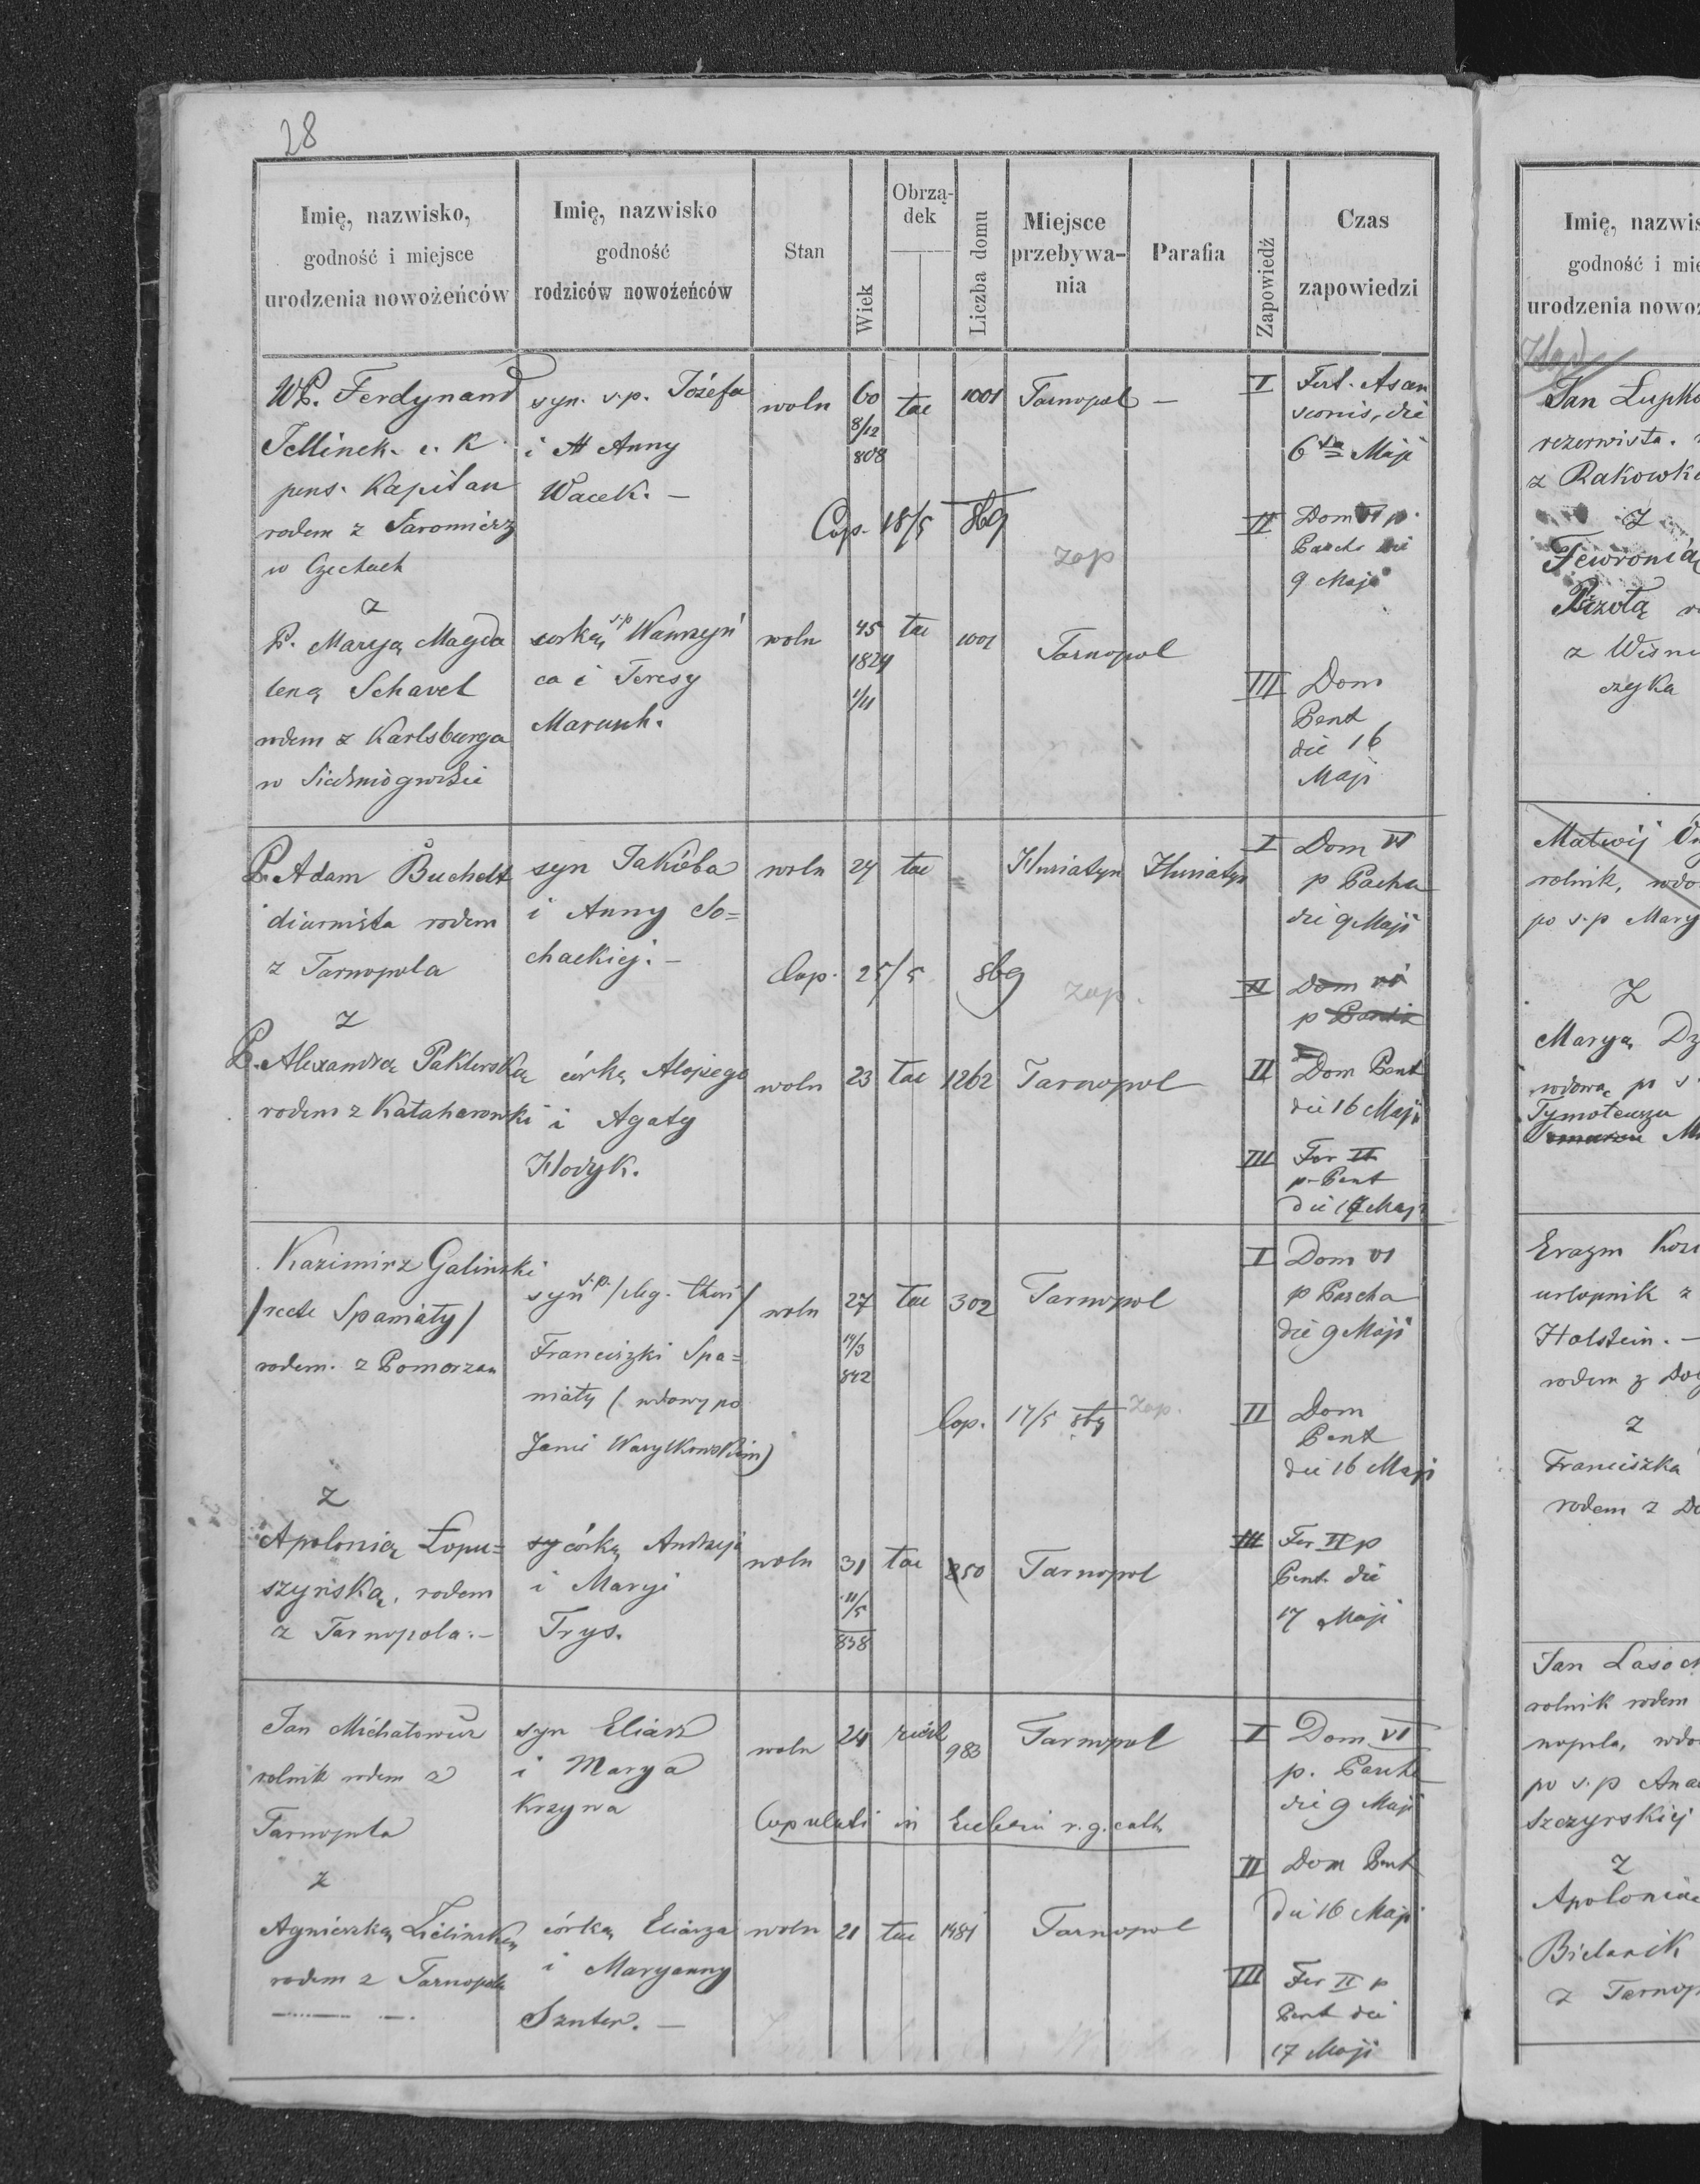 28
Imię, nazwisko,
godność i miejsce
urodzenia nowożeńców
Imię, nazwisko
godność
rodziców nowożeńców
Stan
Wiek
Obrzą-
dek
Liczba domu
Miejsce
przebywa-
nia
Parafia
Zapowiedź
Czas
zapowiedzi
WP. Ferdynand
Jellinek. c. K
pens. Kapitan
rodem z Jaromierz
w Czechach
syn. s.p. Józefa
i Anny
Wacek. –
woln
60
8/12
808
tac
1001
Tarnopol –
Cop. 18/5 869
zap
I
Fest. Ascen
sionis, die
6ta Maji
II
Dom VI p.
Pascha die
9 Maji
z
P. Maryą Magda
leną Schavel
rodem z Karlsburga
w Siedmiogrodzie
córką s.p. Wawrzyń
ca i Teresy
woln
45
1824
1/11
tac
1001
Tarnopol
III
Dom
Pent
die 16
Maji
P. Adam Buchelt
diurnista rodem
z Tarnopola
syn Jakóba
i Anny So=
chackiej. –
woln
24
tac
=
Husiatyn
Husiatyn
Cop. 25/5 869
zap.
I
Dom VI
p Pascha
die 9 Maji
II
Dom VI
p Pascha
z
P. Alexandrą
rodem z
córką Alojzego
i Agaty
Hodyk.
woln
23
tac
1262
Tarnopol
II
Dom Pent
die 16 Maji
III
Fer II
p. Pent
die 17 Maji
Kazimirz Galinski
/recte Spaniały/
rodem. z Pomorzan
syn s.p. /ileg. thori/
Franciszki Spa=
niały (wdowy po
Janie Wasylkowskim)
woln
27
19/3
842
tac
302
Tarnopol
Cop. 17/5 869
zap.
I
Dom VI
p Pascha
die 9 Maji
II
Dom
Pent
die 16 Maji
z
Apolonią Łopu=
szyńską. rodem
z Tarnopola. –
sy córką Andrzeja
i Maryi
Trys.
woln
31
11/5
838
tac
850
Tarnopol
III
Fer II p
Pent. die
17 Maji
Jan Michałowicz
rolnik rodem z
Tarnopola
syn Eliasz
i Marya
Krzywa
woln
24
983
Tarnopol
Copulati in Ecclesia r.g. cath
I
Dom VI
p. Pascha
die 9 Maji
II
Dom Pent
die 16 Maji
z
Agnieszką Zielińską
rodem z Tarnopola
córką Eliasza
i Maryanny
Sznter. –
woln
21
tac
1481
Tarnopol
III
Fer II p
Pent die
17 Maji
Imię, nazwis
godność i mie
urodzenia nowoż
Jan Łupko
rezerwista.
z Rakowk
z
Fewronią
z Wisni
czyka
Matwij
rolnik, wdo
po s.p Mary
Z
Maryą Dz
wdową po s
Tymoteuszu
Erazm Kozi
urlopnik z
Holstein. –
rodem z
z
Franciszka
rodem z Do
Jan Lasoch
rolnik rodem
nopola, wdo
po s.p Ana
Szczyrskiej
z
Apolonia
Bielanik
z Tarnop